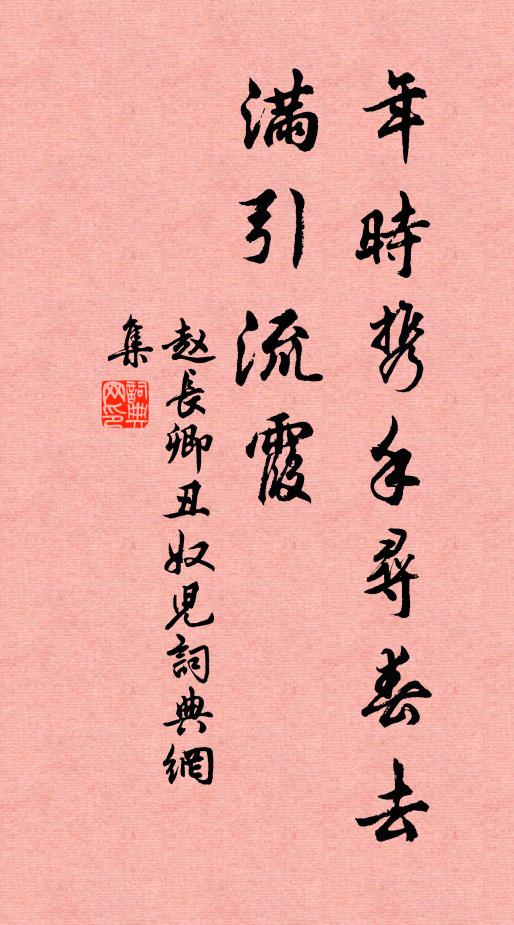 年時携手尋春去
滿引流霞
赵長卿丑奴児詞典網
集
詞典
网印